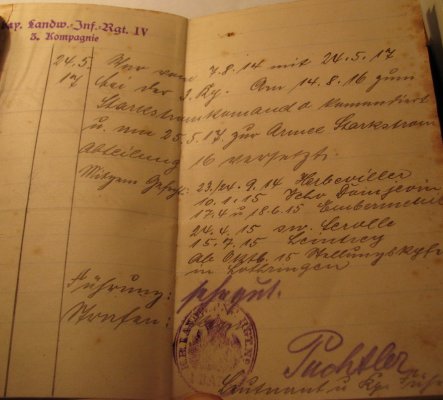 Bay. Landw.-Inf.-Rgt. IV
3. Kompagnie
24.5.
17
War vom 7.8.14 mit 24.5.17
bei der 3. Kp. Am 14.8.16 zum
Starkstromkomando kommandiert
u. am 25.5.17. zur Armee Starkstrom
Abteilung 16 versetzt.
Mitgem. Gefcht: 23/24.9.14 Herbeviller
10.1.15 Domjevin
17.4 u 18.6.15 Embermenil
24.4.15 sw.
15.7.15 Leintrey
Ab Oktb. 15 Stellungskpfe
in Lothringen
Führung: sehr gut.
Strafen:
Leutnant u. Kp.